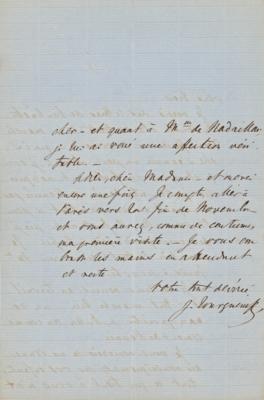 cher – et quant à Mme de Nadaillac
je lui ai voué une affection véri-
table. –
Adieu, chère Madame – et merci
encore une fois. Je compte aller à
Paris vers la fin de Novembre
et vous aurez, comme de coutume,
ma première visite. – Je vous
baise les mains en attendant
et reste
votre tout dévoué
J. Tourguéneff